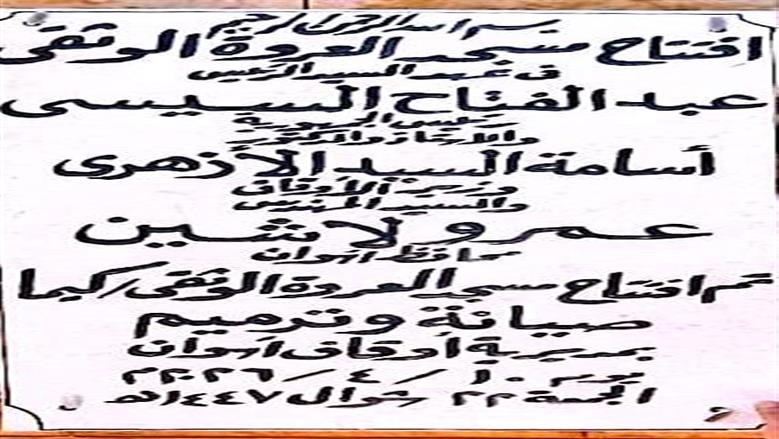 بسم الله الرحمن الرحيم
افتتاح مسجد العروة الوثقى
فى عهد السيد الرئيس
عبد الفتاح السيسى
رئيس الجمهورية
والاستاذ الدكتور
أسامة السيد الأزهرى
وزير الأوقاف
والسيد المهندس
عمرو لاشين
محافظ اسوان
تم افتتاح مسجد العروة الوثقى / كيما
صيانة وترميم
بمديرية أوقاف اسوان
يوم ١٠ / ٤ / ٢٠٢٦م
الجمعة ٢٢ شوال ١٤٤٧هـ